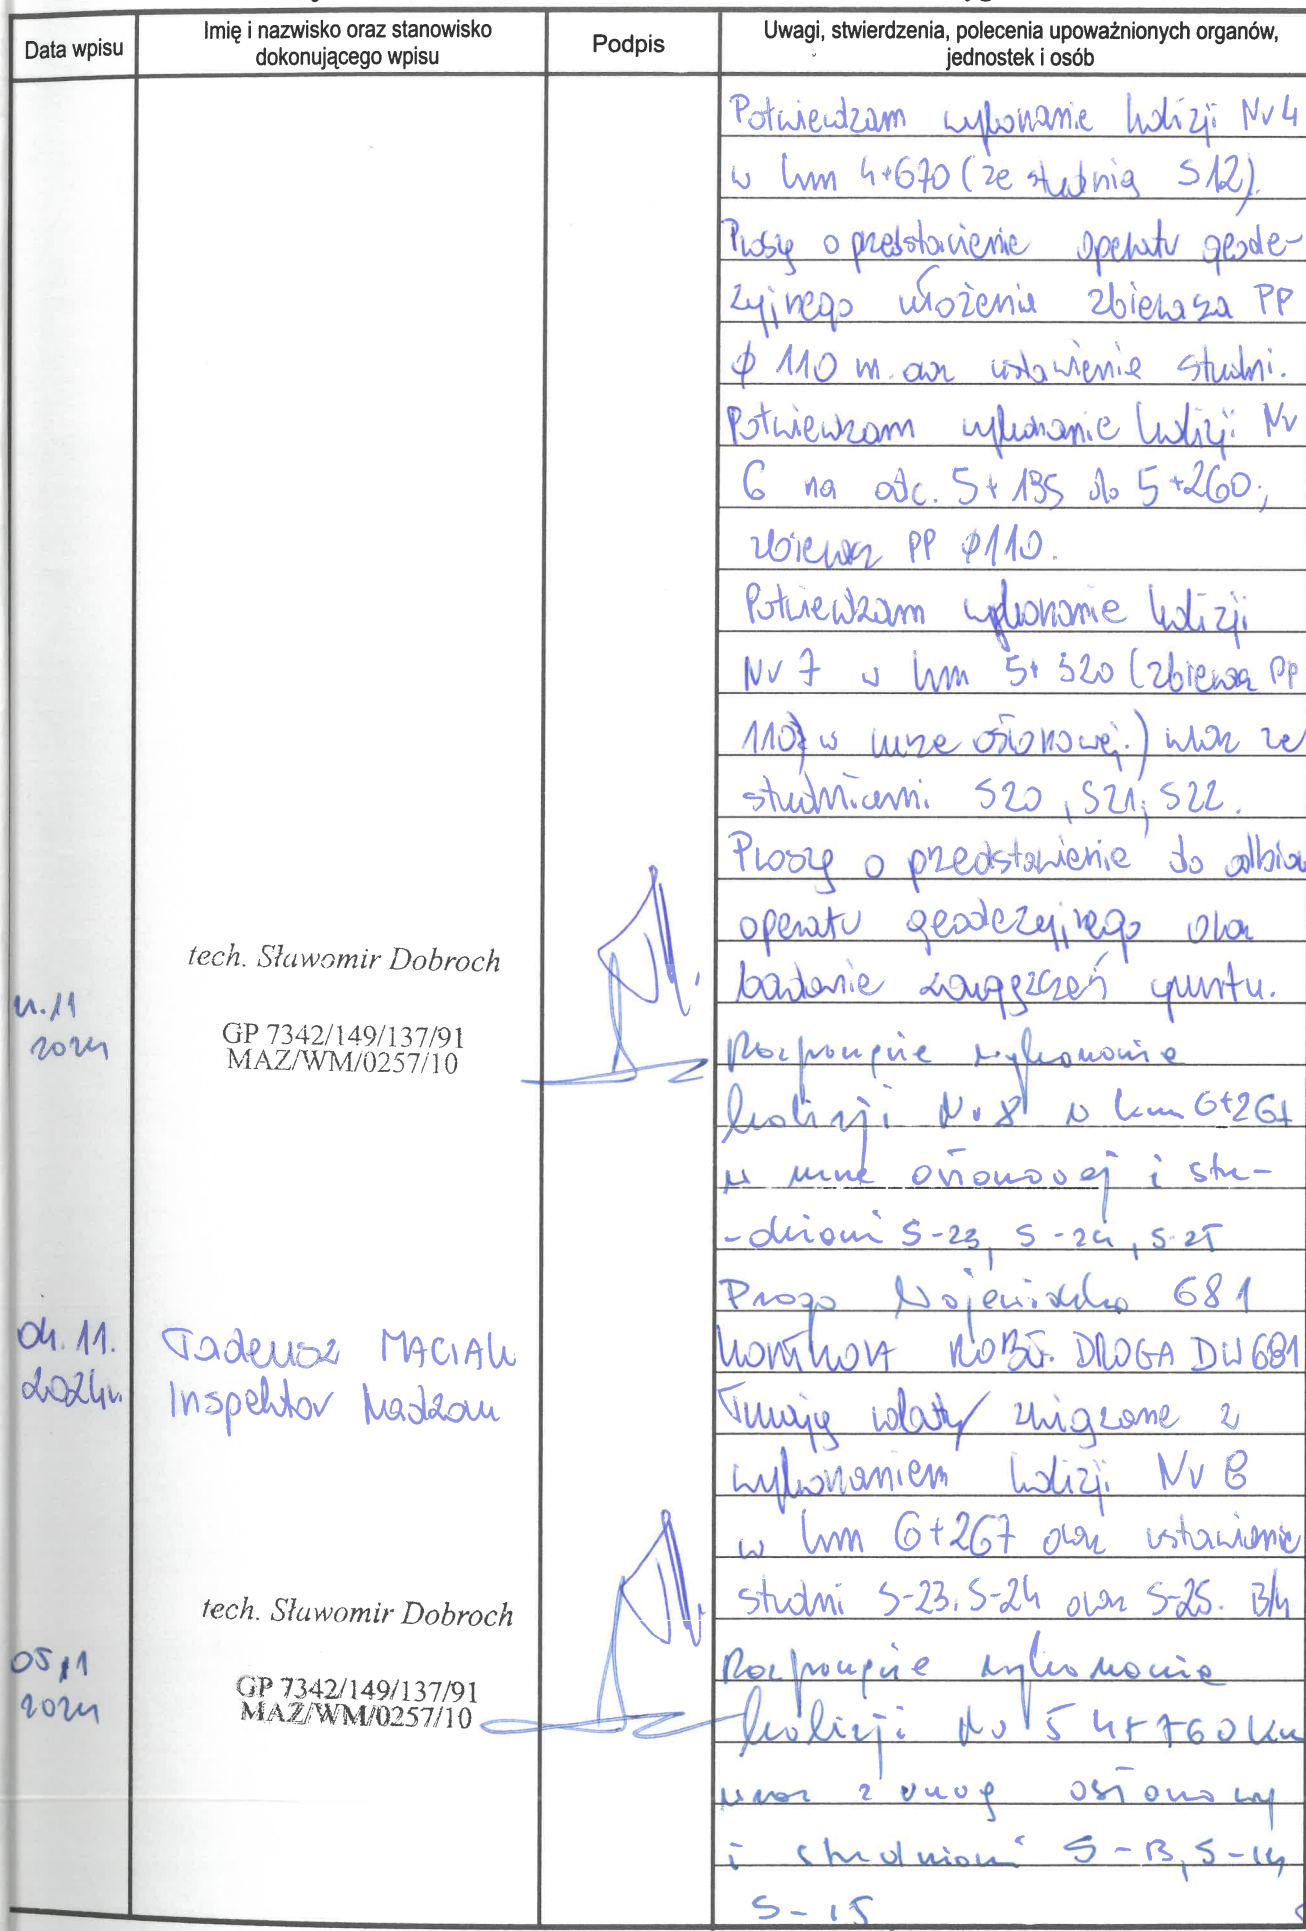 Data wpisu
Imię i nazwisko oraz stanowisko
dokonującego wpisu
Podpis
Uwagi, stwierdzenia, polecenia upoważnionych organów,
jednostek i osób
Potwierdzam wykonanie kolizji Nr 4
w km 4+670 (ze studnią S12).
Proszę o przedstawienie operatu geode-
zyjnego ułożenia zbieracza PP
φ 110 m. oraz ustawienie studni.
Potwierdzam wykonanie kolizji Nr
6 na odc. 5+195 do 5+260;
zbieracz PP φ110.
Potwierdzam wykonanie kolizji
Nr 7 w km 5+520 (zbieracz PP
110) w rurze osłonowej.) wraz ze
studnicami S20, S21, S22.
Proszę o przedstawienie do odbioru
operatu geodezyjnego oraz
badanie zagęszczeń gruntu.
tech. Sławomir Dobroch
GP 7342/149/137/91
MAZ/WM/0257/10
4.11
2024
Rozpoczęcie wykonania
kolizji Nr 8 w km 6+267
w rurze osłonowej i stu-
-dniami S-23, S-24, S-25
04.11.
2024r.
Tadeusz MACIAK
Inspektor Nadzoru
Droga Wojewódzka 681
KONTROLA ROBÓT. DROGA DW 681
Trwają roboty związane z
wykonaniem kolizji Nr 8
w km 6+267 oraz ustawienie
studni S-23, S-24 oraz S-25. B/u
tech. Sławomir Dobroch
GP 7342/149/137/91
MAZ/WM/0257/10
05.11
2024
Rozpoczęcie wykonania
kolizji Nr 5 4+760 km
wraz z rurą osłonową
i studniami S-13, S-14
S-15